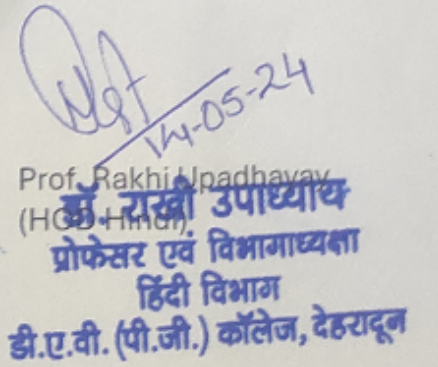 14-05-24
Prof. Rakhi Upadhayay
(HOD Hindi)
डॉ. राखी उपाध्याय
प्रोफेसर एवं विभागाध्यक्षा
हिंदी विभाग
डी.ए.वी. (पी.जी.) कॉलेज, देहरादून